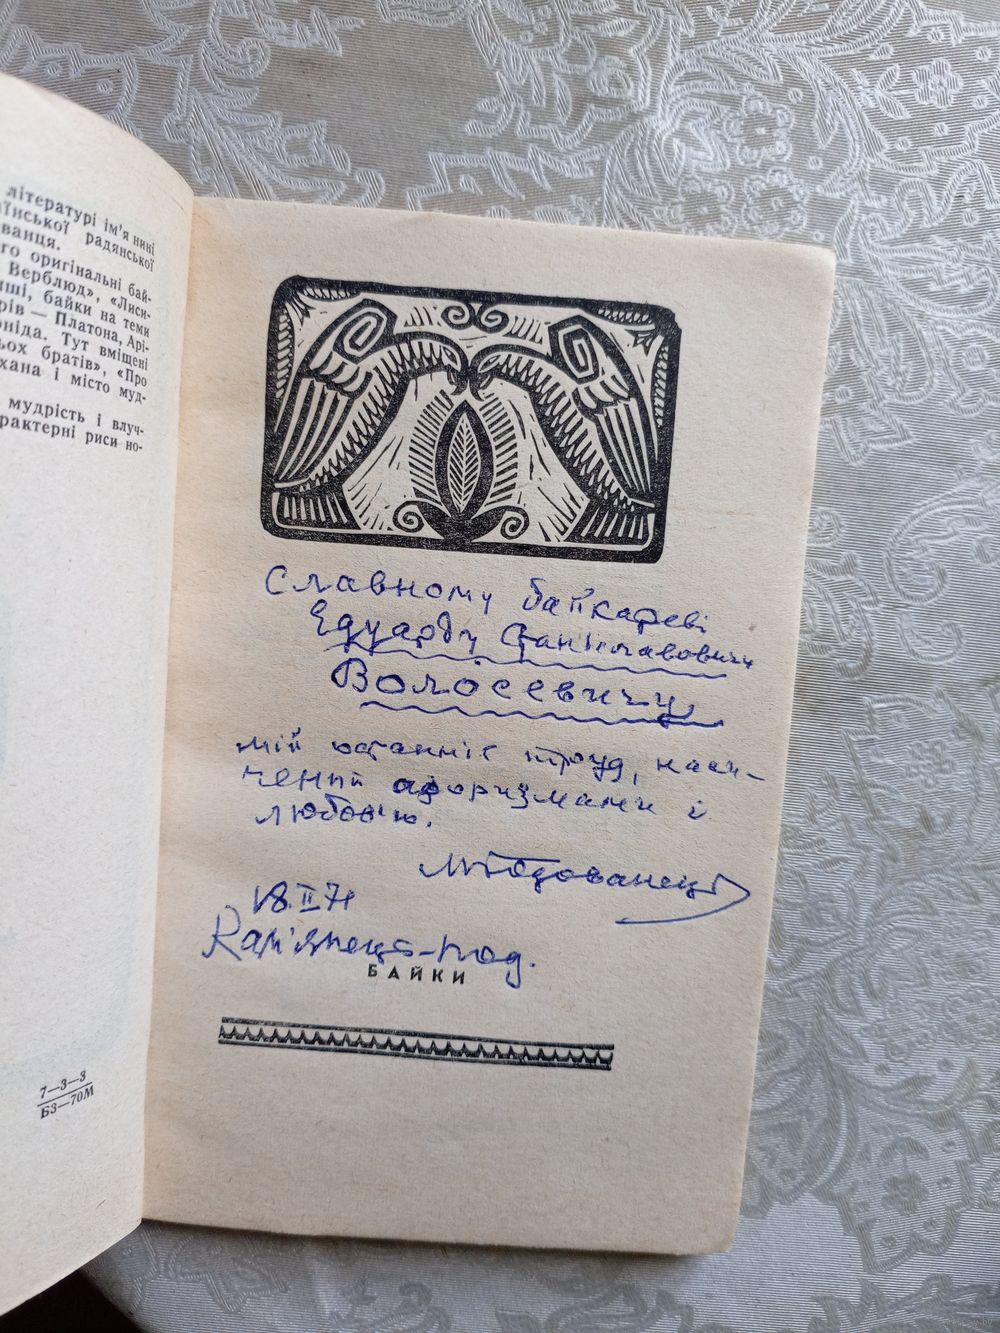 літературі ім'я нині
їнської радянської
ванця.
го оригінальні бай-
Верблюд», «Лиси-
ші, байки на теми
рів — Платона, Арі-
ніда. Тут вміщені
ьох братів», «Про
хана і місто муд-
мудрість і влуч-
рактерні риси но-
7—3—3
БЗ—70М
Славному байкареві
Едуарду Станіславовичу
Волосевичу,
мій останній труд, наси-
чений афоризмами і
любов'ю.
МГодованець
18.II 71
Кам'янець-Под.
БАЙКИ